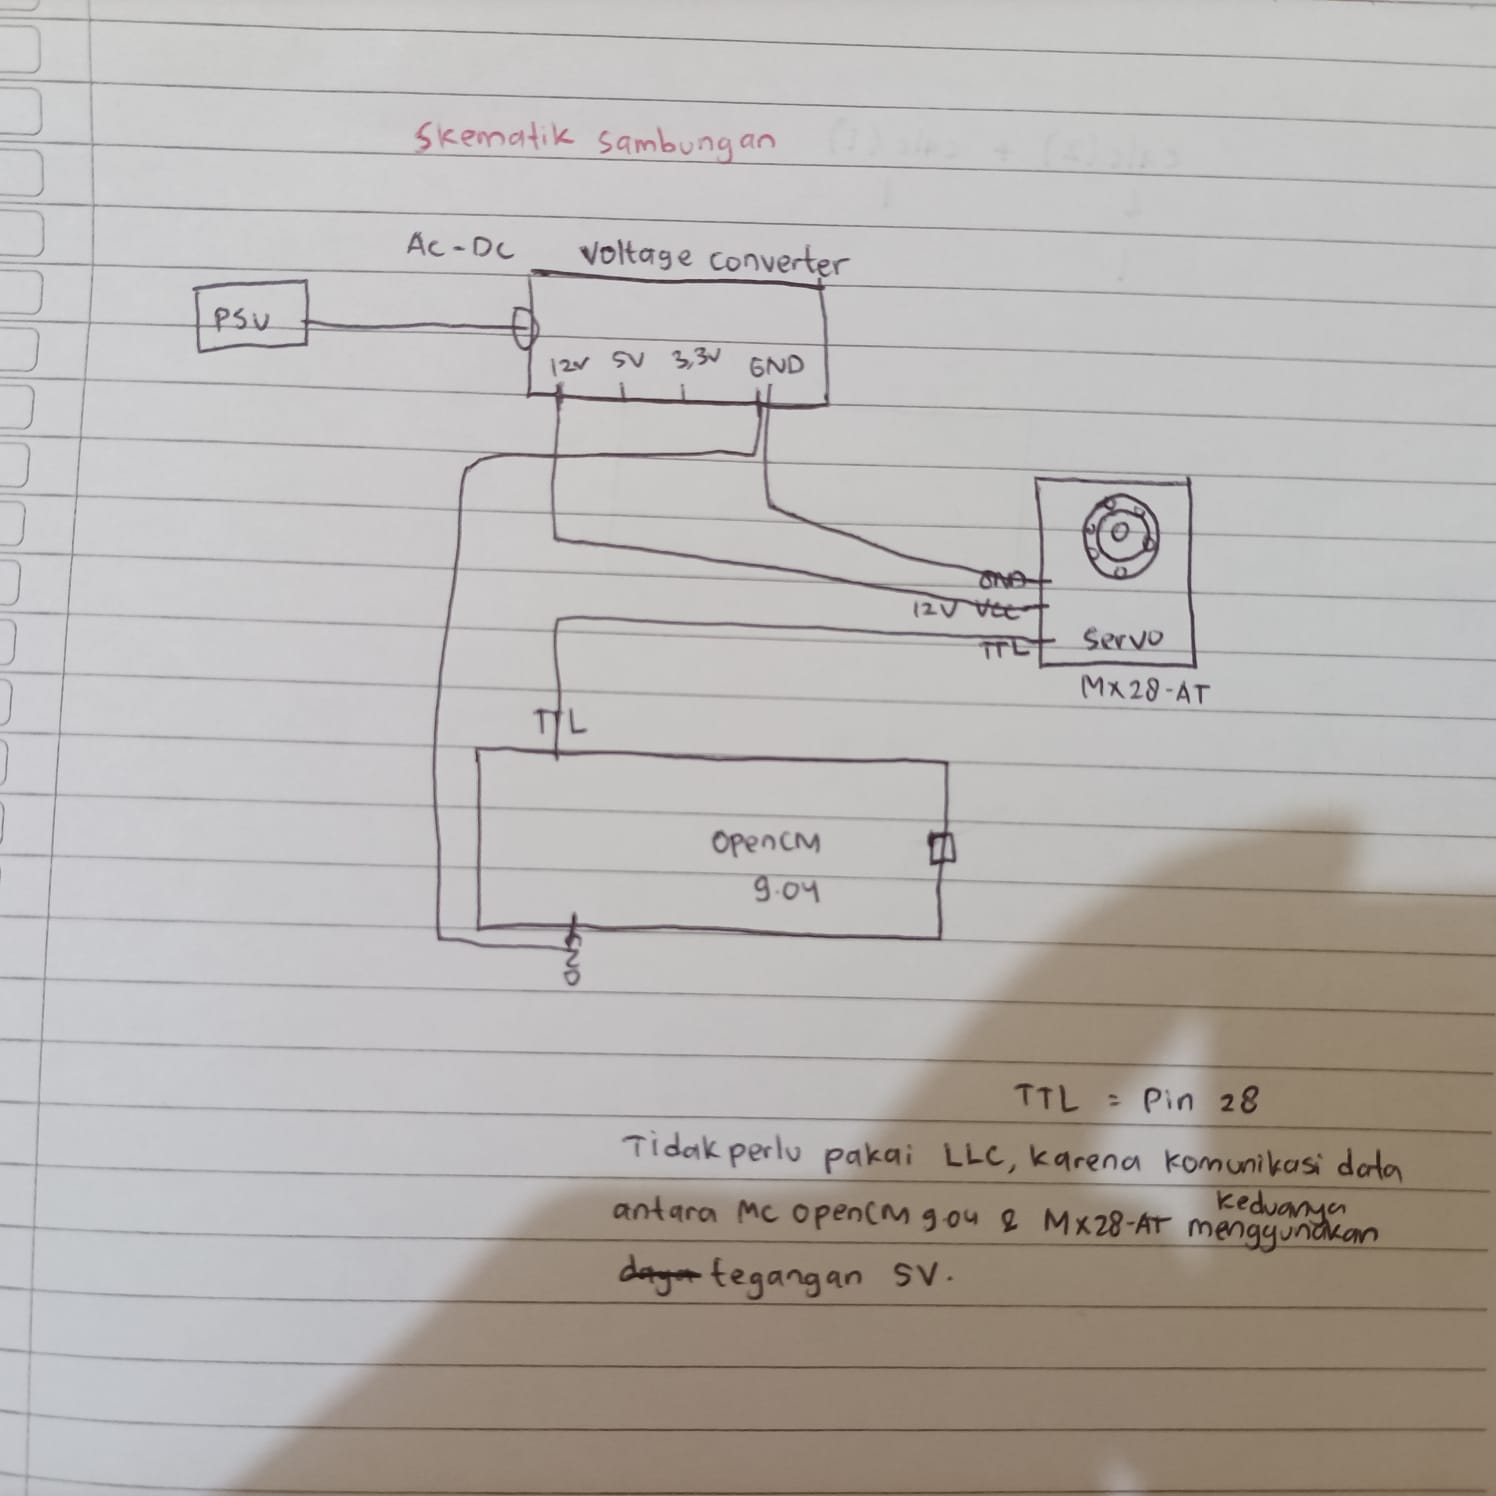 Skematik sambungan
AC-DC Voltage converter
PSU
12V 5V 3,3V GND
GND
12V VCC
TTL
Servo
MX28-AT
TTL
OpenCM
9.04
GND
TTL = Pin 28
Tidak perlu pakai LLC, karena komunikasi data
antara MC OpenCM 9.04 & MX28-AT keduanya menggunakan
daya tegangan 5V.